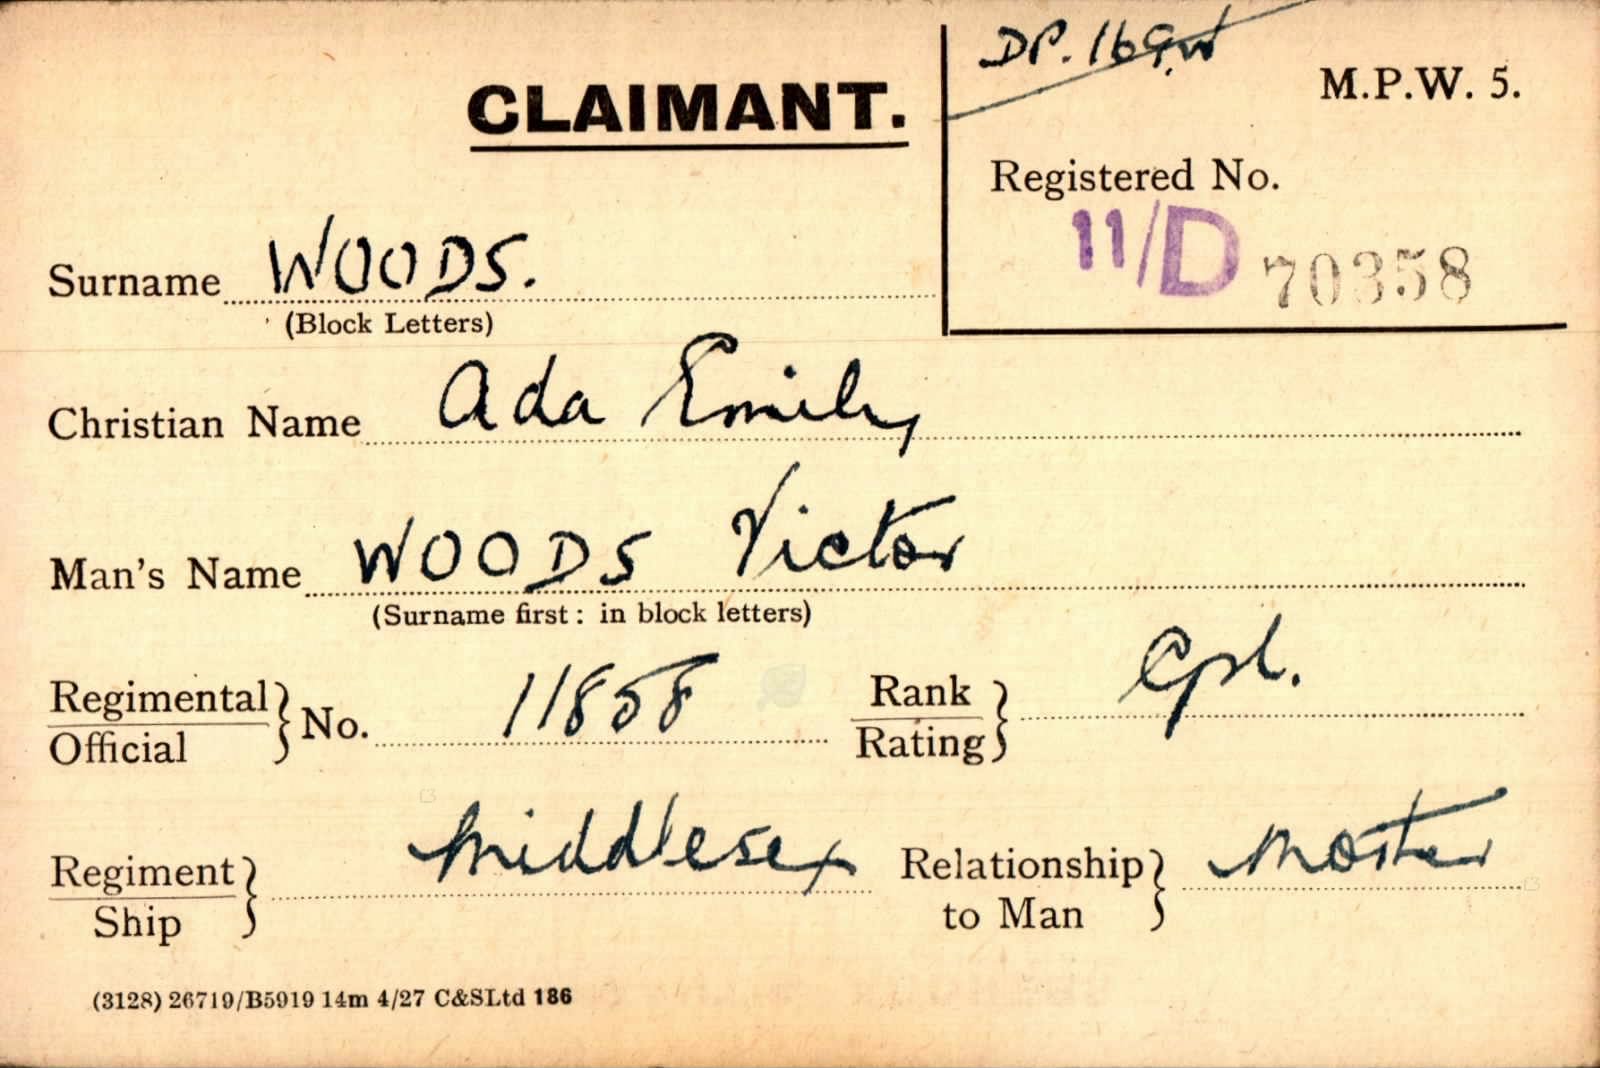 DP. 169W
CLAIMANT.
M.P.W. 5.
Registered No.
11/D 70358
Surname WOODS.
(Block Letters)
Christian Name Ada Emily
Man's Name WOODS Victor
(Surname first: in block letters)
Regimental
Official } No. 11858
Rank
Rating } Cpl.
Regiment
Ship } Middlesex
Relationship
to Man } Mother
(3128) 26719/B5919 14m 4/27 C&SLtd 186